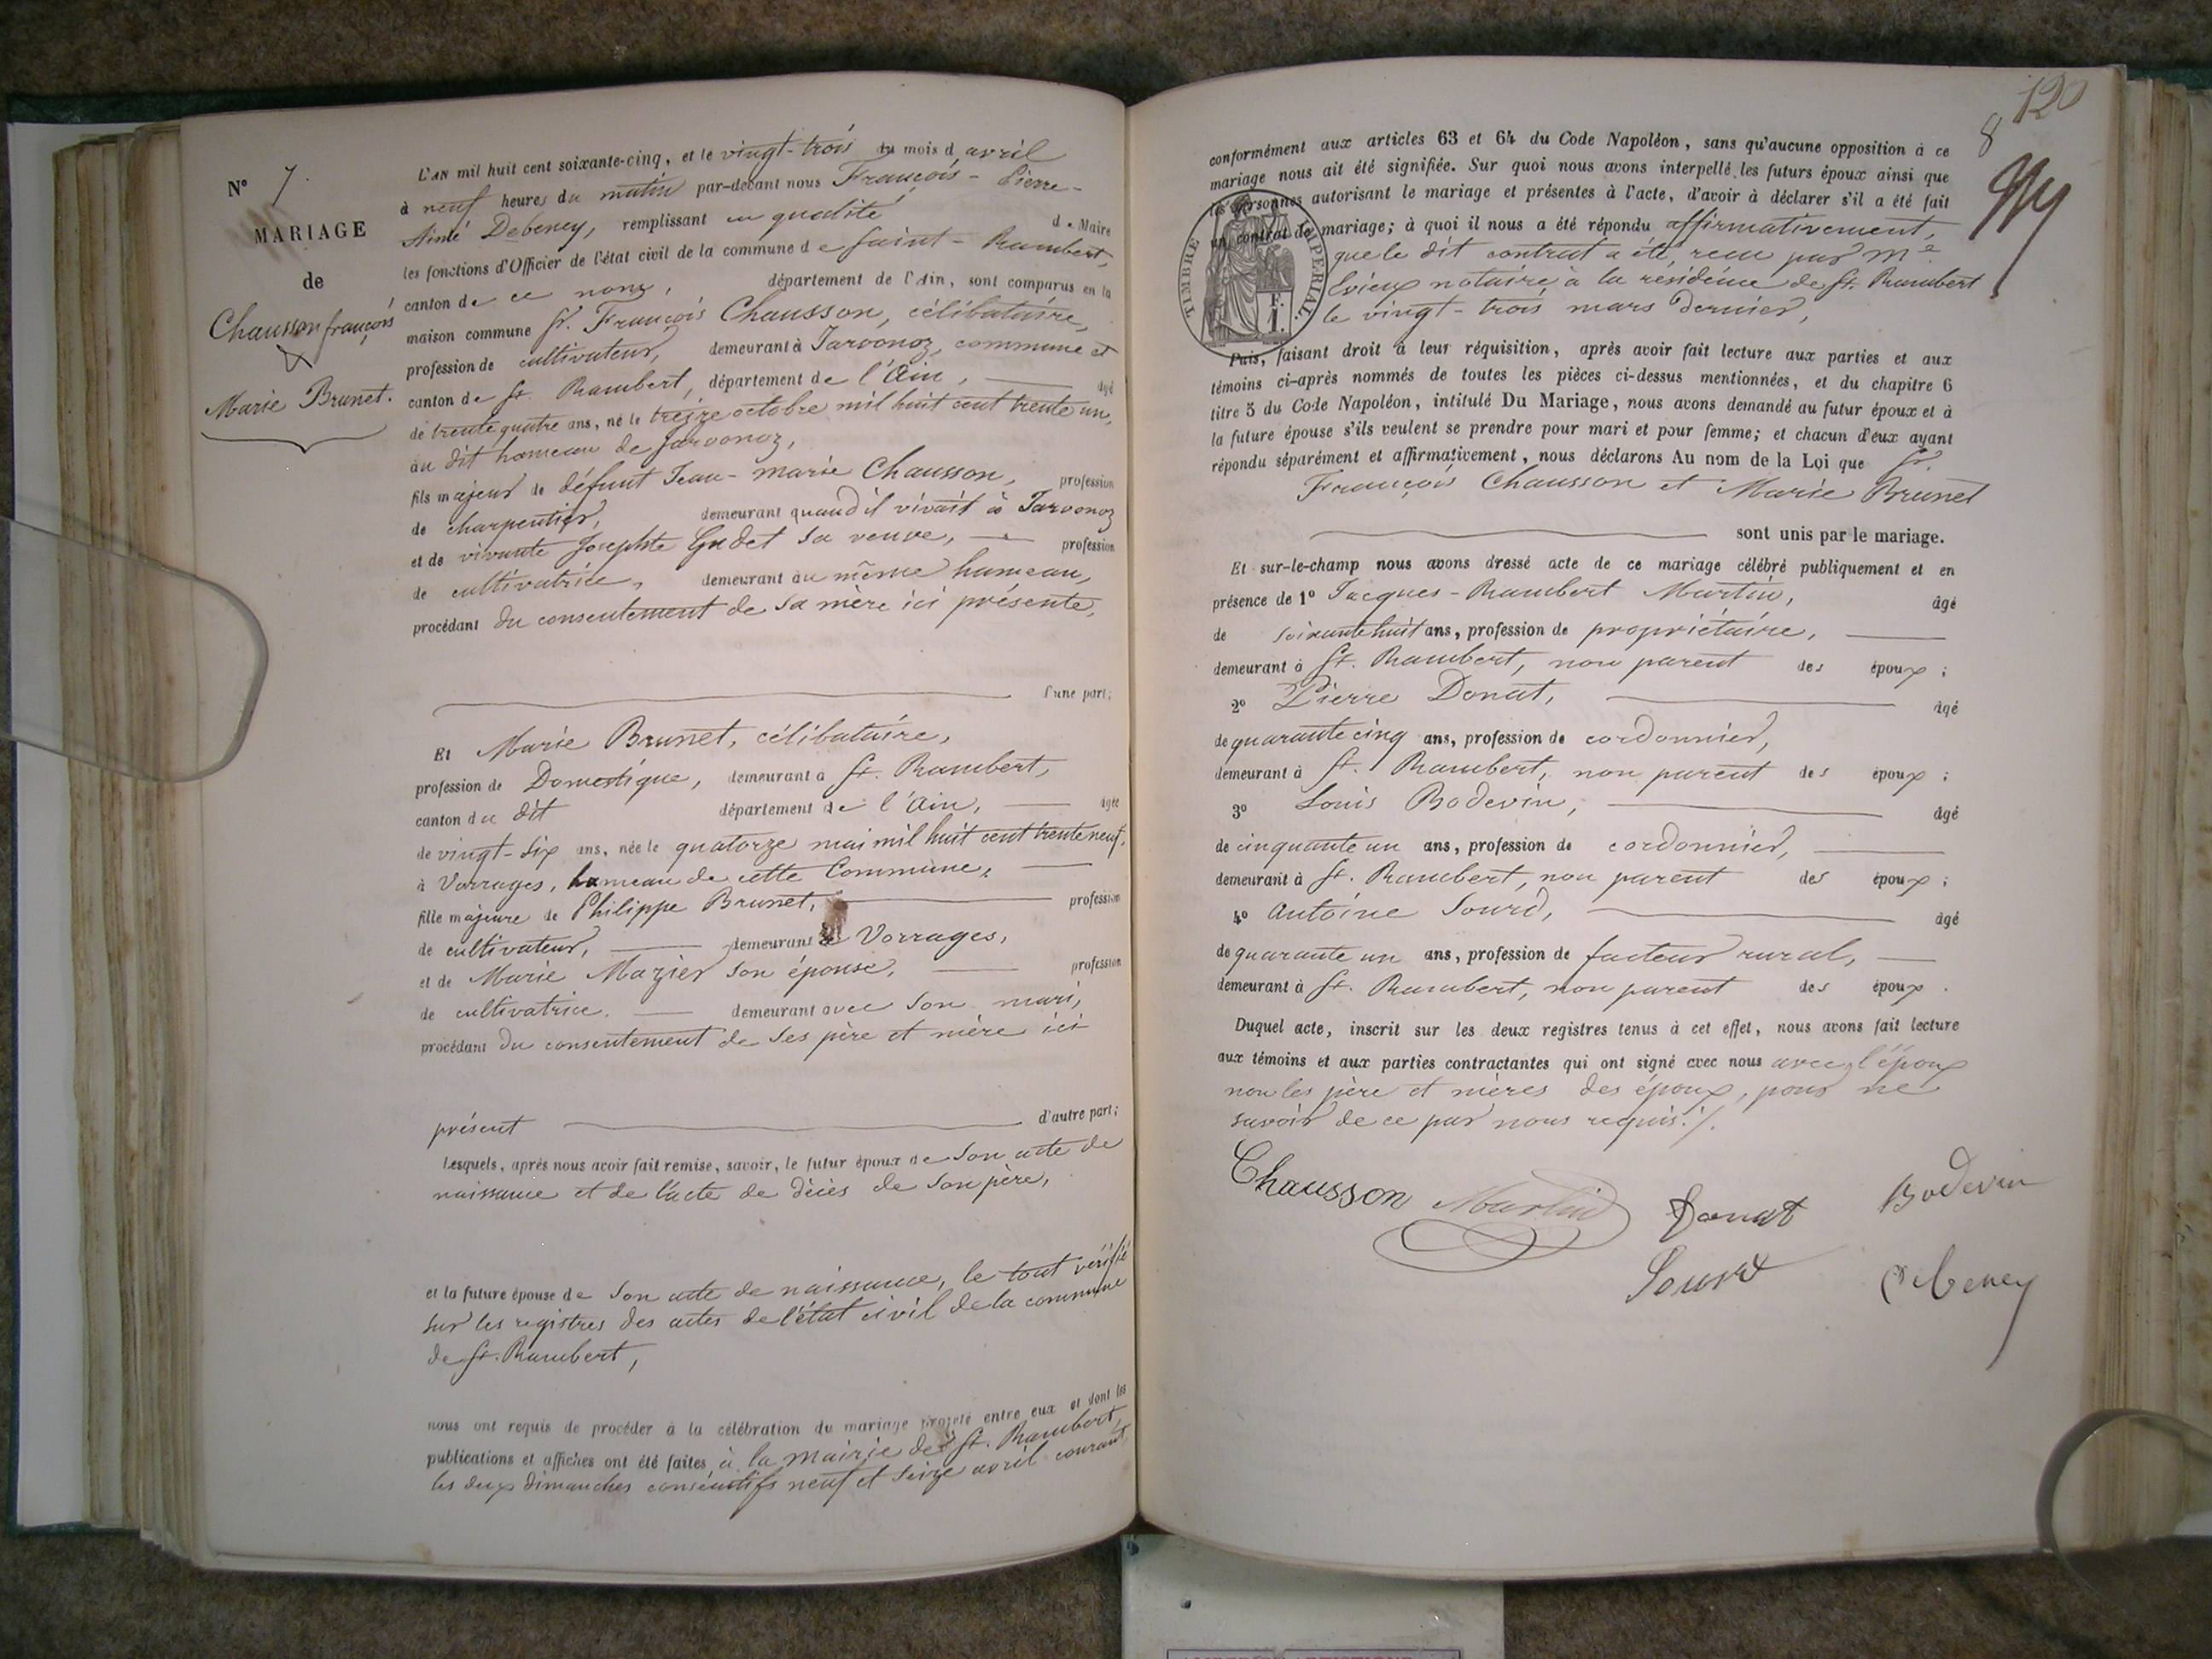 N° 7.
MARIAGE
de
Chausson françois
&
Marie Brunet.
L'AN mil huit cent soixante-cinq, et le vingt-trois du mois d avril
à neuf heures du matin par-devant nous François-Pierre-
Aimé Debeney, remplissant en qualité de Maire
les fonctions d'Officier de l'état civil de la commune de Saint-Rambert,
canton de ce nom, département de l'Ain, sont comparus en la
maison commune Sr. François Chausson, célibataire,
profession de cultivateur, demeurant à Javornoz, commune et
canton de St. Rambert, département de l'Ain, âgé
de trente quatre ans, né le treize octobre mil huit cent trente un,
au dit hameau de Javornoz,
fils majeur de défunt Jean-marie Chausson, profession
de charpentier, demeurant quand il vivait à Javornoz
et de vivante Josephte Gudet sa veuve, profession
de cultivatrice, demeurant au même hameau,
procédant du consentement de sa mère ici présente,
d'une part;
Et Marie Brunet, célibataire,
profession de Domestique, demeurant à St. Rambert,
canton du dit département de l'Ain, âgée
de vingt-six ans, née le quatorze mai mil huit cent trente neuf,
à Vorrages, hameau de cette Commune,
fille majeure de Philippe Brunet, profession
de cultivateur, demeurant à Vorrages,
et de Marie Mazier son épouse, profession
de cultivatrice. demeurant avec son mari,
procédant du consentement de ses père et mère ici
présent d'autre part;
Lesquels, après nous avoir fait remise, savoir, le futur époux de son acte de
naissance et de l'acte de décès de son père,
et la future épouse de son acte de naissance, le tout vérifié
sur les registres des actes de l'état civil de la commune
de St. Rambert,
nous ont requis de procéder à la célébration du mariage projeté entre eux et dont les
publications et affiches ont été faites à la mairie de St. Rambert,
les deux dimanches consécutifs neuf et seize avril courant,
120
8
conformément aux articles 63 et 64 du Code Napoléon, sans qu'aucune opposition à ce
mariage nous ait été signifiée. Sur quoi nous avons interpellé les futurs époux ainsi que
les personnes autorisant le mariage et présentes à l'acte, d'avoir à déclarer s'il a été fait
un contrat de mariage; à quoi il nous a été répondu affirmativement,
que le dit contrat a été reçu par Me
Evieux notaire à la résidence de St. Rambert
le vingt-trois mars dernier,
TIMBRE IMPERIAL.
1 F.
Puis, faisant droit à leur réquisition, après avoir fait lecture aux parties et aux
témoins ci-après nommés de toutes les pièces ci-dessus mentionnées, et du chapitre 6
titre 5 du Code Napoléon, intitulé Du Mariage, nous avons demandé au futur époux et à
la future épouse s'ils veulent se prendre pour mari et pour femme; et chacun d'eux ayant
répondu séparément et affirmativement, nous déclarons Au nom de la Loi que Sr.
François Chausson et Marie Brunet
sont unis par le mariage.
Et sur-le-champ nous avons dressé acte de ce mariage célébré publiquement et en
présence de 1° Jacques-Rambert Martin, âgé
de soixante huit ans, profession de propriétaire,
demeurant à St. Rambert, non parent des époux;
2° Pierre Donat, âgé
de quarante cinq ans, profession de cordonnier,
demeurant à St. Rambert, non parent des époux;
3° Louis Bodevin, âgé
de cinquante un ans, profession de cordonnier,
demeurant à St. Rambert, non parent des époux;
4° Antoine Sourd, âgé
de quarante un ans, profession de facteur rural,
demeurant à St. Rambert, non parent des époux.
Duquel acte, inscrit sur les deux registres tenus à cet effet, nous avons fait lecture
aux témoins et aux parties contractantes qui ont signé avec nous avec l'époux
non les père et mères des époux, pour ne
savoir de ce par nous requis./.
Chausson Martin Donat Bodevin
Sourd Debeney